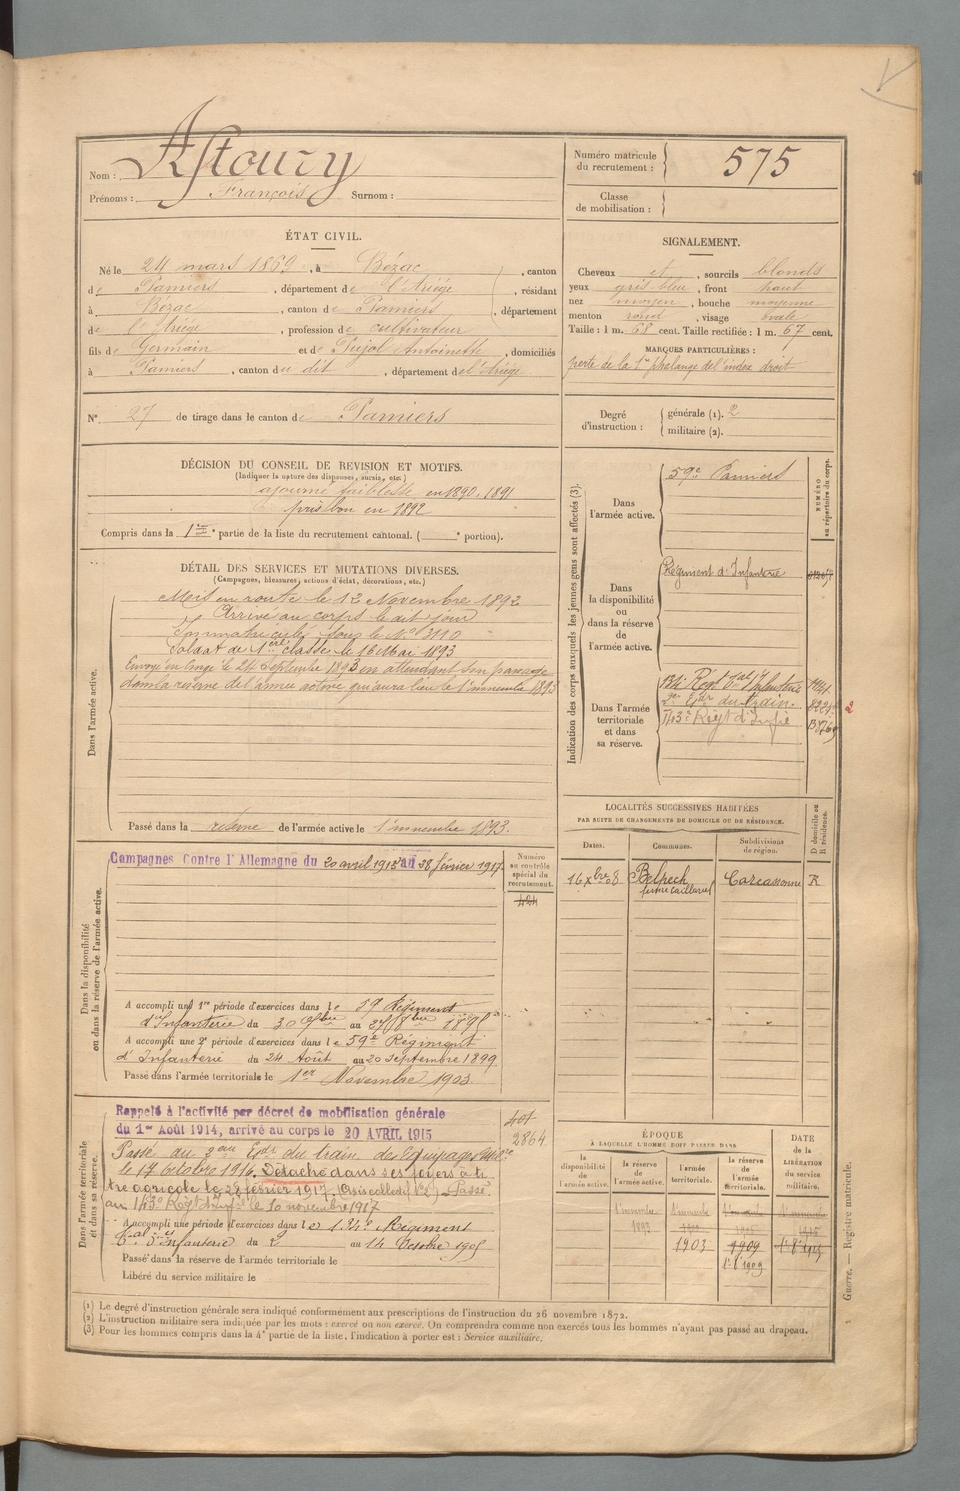 Nom : Astoury
Prénoms : François Surnom :
Numéro matricule du recrutement : 575
Classe de mobilisation :
ÉTAT CIVIL.
Né le 24 mars 1869, à Bézac, canton
de Pamiers, département de l'Ariège, résidant
à Bézac, canton de Pamiers, département
de l'Ariége, profession de cultivateur
fils de Germain et de Pujol Antoinette, domiciliés
à Pamiers, canton du dit, département de l'Ariége
SIGNALEMENT.
Cheveux et, sourcils blonds
yeux gris bleu, front haut
nez moyen, bouche moyenne
menton rond, visage ovale
Taille : 1 m. 68 cent. Taille rectifiée : 1 m. 67 cent.
MARQUES PARTICULIÈRES :
perte de la 1re phalange de l'index droit
N° 27 de tirage dans le canton de Pamiers
Degré d'instruction :
générale (1). 2
militaire (2).
DÉCISION DU CONSEIL DE REVISION ET MOTIFS.
(Indiquer la nature des dispenses, sursis, etc.)
ajourné faiblesse en 1890, 1891
pris bon en 1892
Compris dans la 1re partie de la liste du recrutement cantonal. ( e portion).
DÉTAIL DES SERVICES ET MUTATIONS DIVERSES.
(Campagnes, blessures, actions d'éclat, décorations, etc.)
Dans l'armée active.
Mis en route le 12 Novembre 1892
Arrivé au corps le dit jour
Immatriculé sous le N° 3110
Soldat de 1ère classe le 16 Mai 1893
Envoyé en congé le 24 Septembre 1893 en attendant son passage
dans la réserve de l'armée active qui aura lieu le 1er novembre 1893
Passé dans la réserve de l'armée active le 1er novembre 1893.
Indication des corps auxquels les jeunes gens sont affectés (3).
NUMÉRO au répertoire du corps.
Dans l'armée active.
59e Pamiers
Dans la disponibilité ou dans la réserve de l'armée active.
Régiment d'Infanterie
Dans l'armée territoriale et dans sa réserve.
134e Regt d'Infanterie
2e Edr du train.
143e Regt d'Infie
2
LOCALITÉS SUCCESSIVES HABITÉES
PAR SUITE DE CHANGEMENTS DE DOMICILE OU DE RÉSIDENCE.
Dates. Communes. Subdivisions de région. D domicile ou R résidence.
16 Xbre 08 Belpech Carcassonne R
Dans la disponibilité ou dans la réserve de l'armée active.
Campagnes Contre l'Allemagne du 20 avril 1915 au 28 février 1917.
Numéro au contrôle spécial du recrutement.
424
A accompli une 1re période d'exercices dans le 59 Régiment
d'Infanterie du 30 7bre au 27 8bre 1895
A accompli une 2e période d'exercices dans le 59e Régiment
d'Infanterie du 24 Août au 20 septembre 1899
Passé dans l'armée territoriale le 1er Novembre 1903.
Dans l'armée territoriale et dans sa réserve.
Rappelé à l'activité par décret de mobilisation générale
du 1er Août 1914, arrivé au corps le 20 AVRIL 1915
401
2864
Passé du au Edr du train des Equipages Mil.re
le 17 octobre 1916. Détaché dans ses foyers à ti
tre agricole le 28 février 1917. Passé
au 143e Regt d'Infie le 10 novembre 1917
A accompli une période d'exercices dans le 134e Régiment
d'Infanterie du 2 au 14 Octobre 1905
Passé dans la réserve de l'armée territoriale le
Libéré du service militaire le
ÉPOQUE
À LAQUELLE L'HOMME DOIT PASSER DANS
DATE de la LIBÉRATION du service militaire.
la disponibilité de l'armée active.
la réserve de l'armée active.
l'armée territoriale.
la réserve de l'armée territoriale.
1er novembre 1893
1903
1909
(1) Le degré d'instruction générale sera indiqué conformément aux prescriptions de l'instruction du 26 novembre 1872.
(2) L'instruction militaire sera indiquée par les mots : exercé ou non exercé. On comprendra comme non exercés tous les hommes n'ayant pas passé au drapeau.
(3) Pour les hommes compris dans la 4e partie de la liste, l'indication à porter est : Service auxiliaire.
Guerre. — Registre matricule.